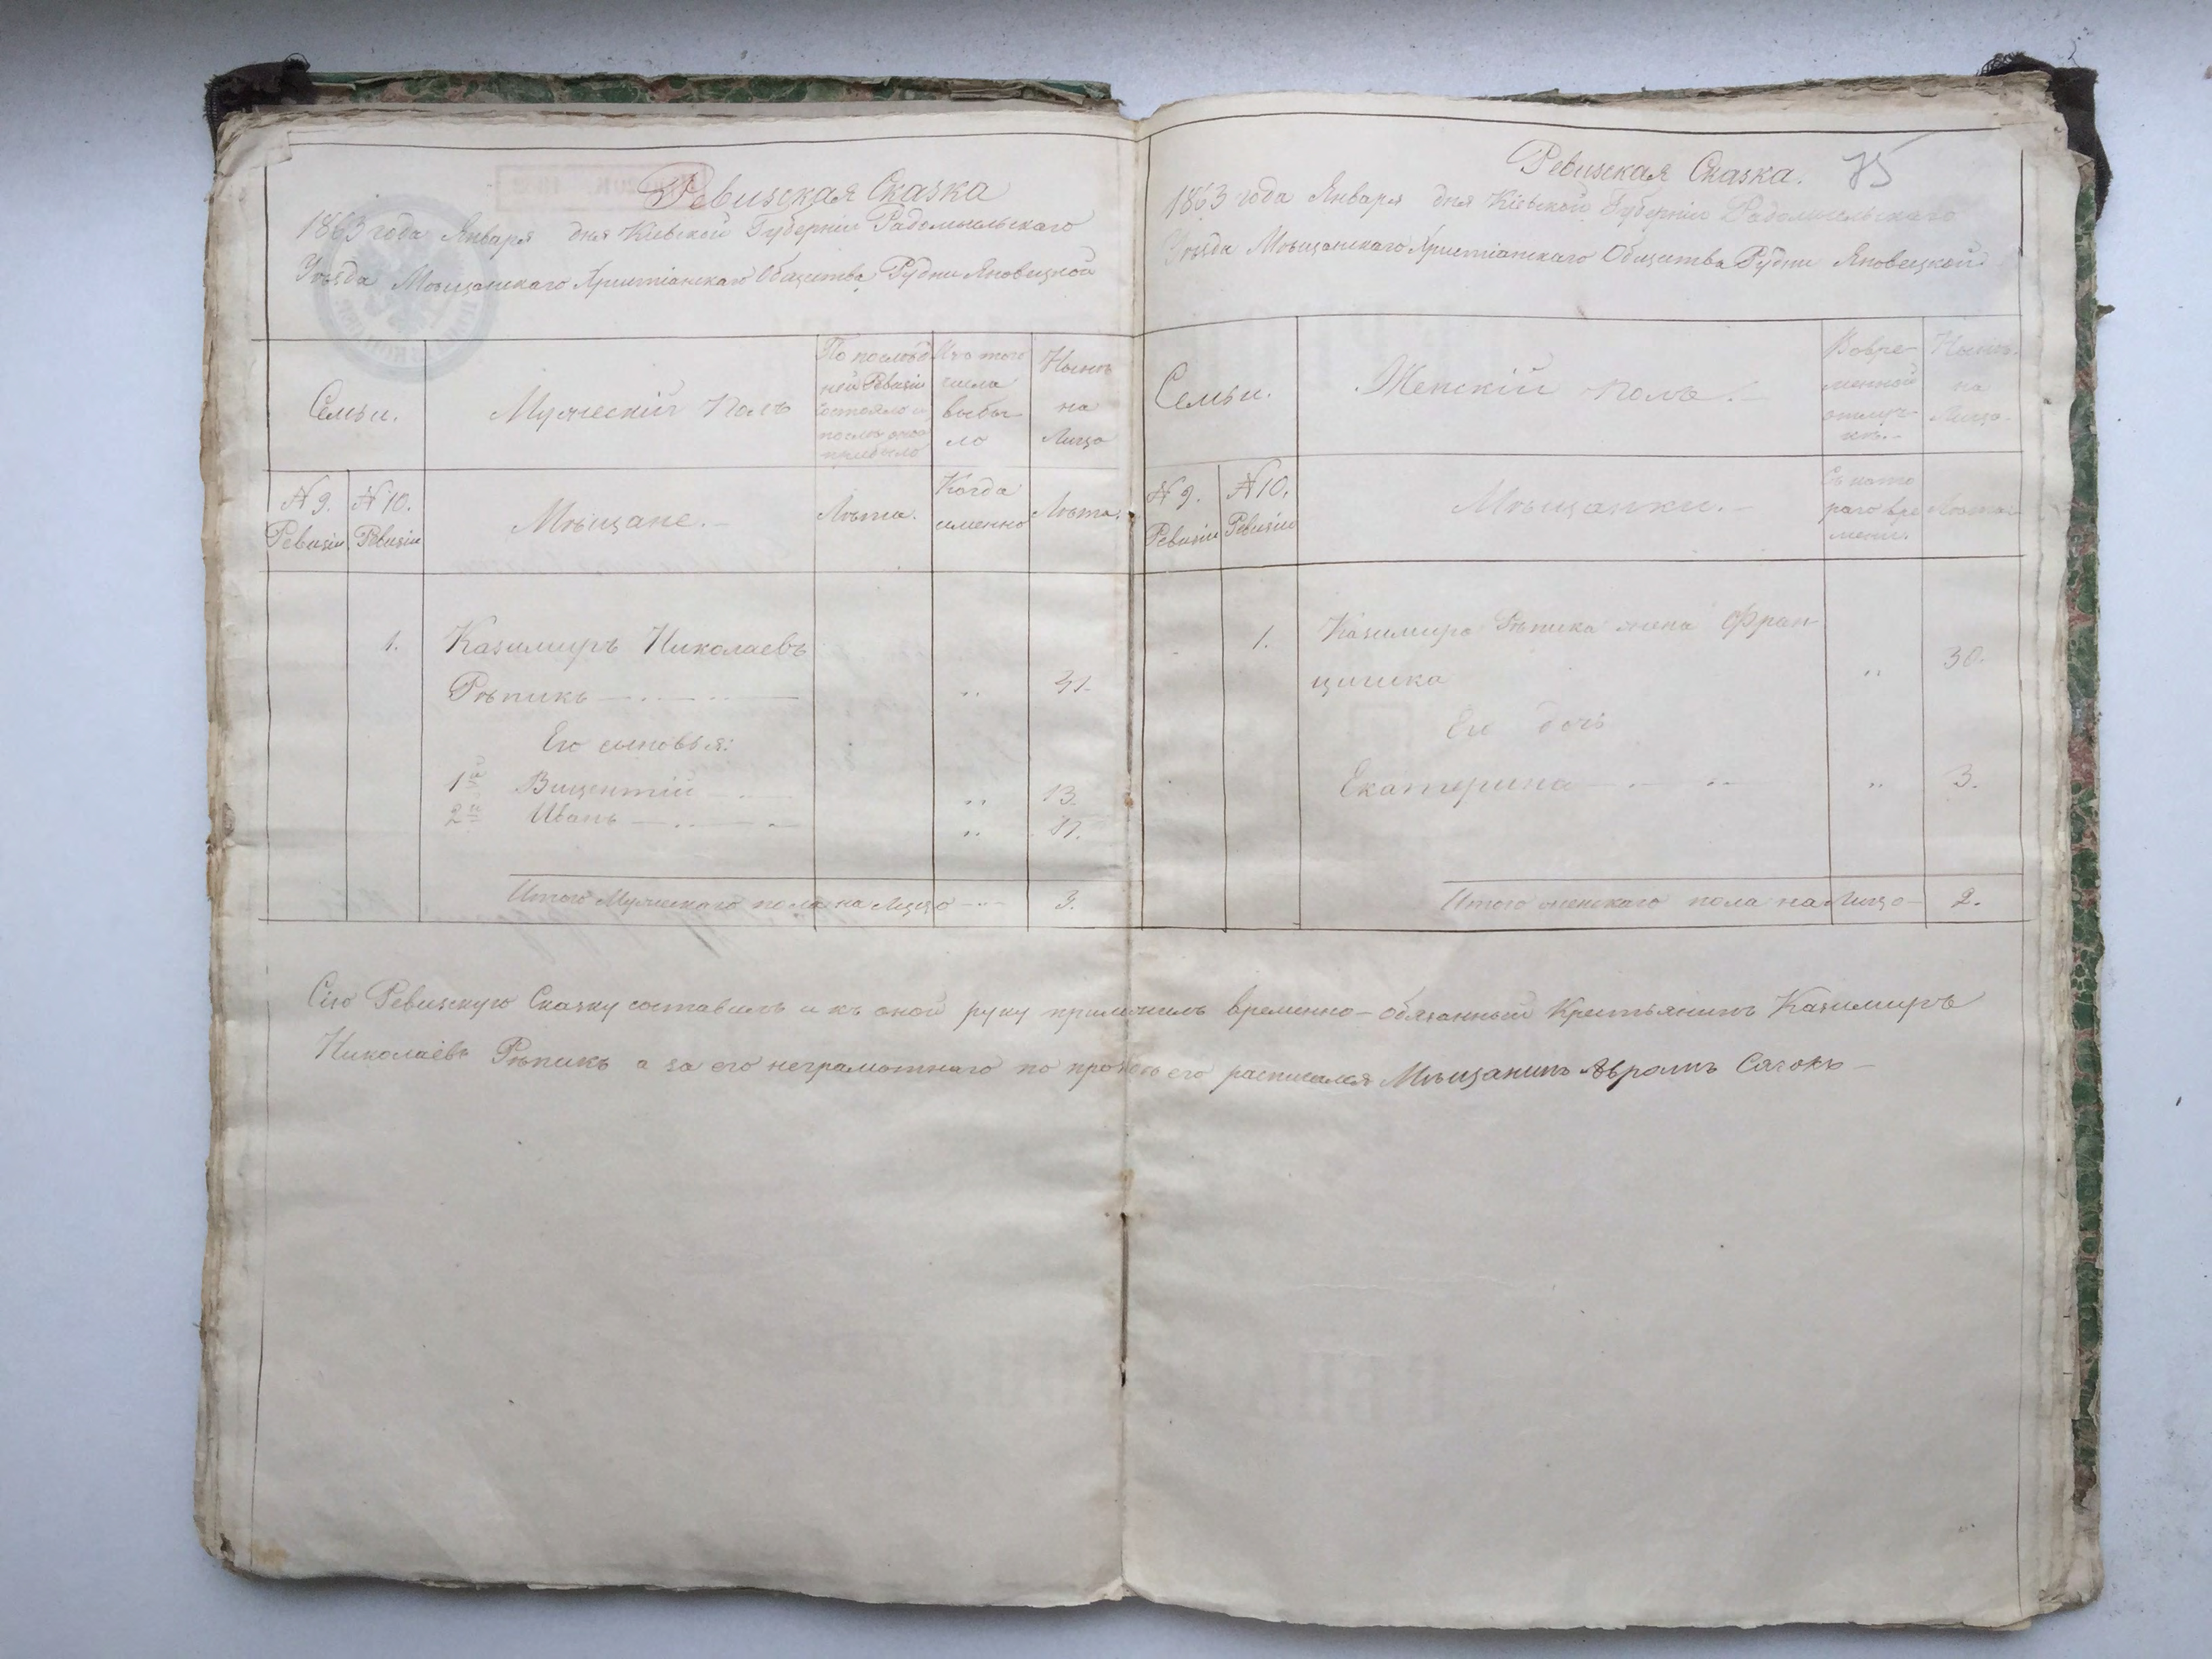 Ревизская Сказка
1863 года Января дня Кіевской Губерніи Радомысльскаго
Уѣзда Мѣщанскаго Християнскаго Общества Рудни Яновецкой
Семьи.
Мужескій Полъ
По послѣд
ней Ревизіи
состояло и
послѣ оной
прибыло
Изъ того
числа
выбы-
ло
Нынѣ
на
Лицо
№ 9.
Ревизіи
№ 10.
Ревизіи
Мѣщане.
Лѣта.
Когда
именно
Лѣта.
1. Казимиръ Николаевъ
Рѣпикъ
Его сыновья:
1й Вицентій 13.
2й Иванъ
Итого Мужескаго пола на Лицо 3.
75
Ревизская Сказка.
1863 года Января дня Кіевской Губерніи Радомысльскаго
Уѣзда Мѣщанскаго Христіанскаго Общества Рудни Яновецкой
Семьи.
Женскій полъ.
Во вре-
менной
отлуч-
кѣ.
Нынѣ
на
Лицо.
№ 9.
Ревизіи
№ 10.
Ревизіи
Мѣщанки.
Съ кото
раго вре
мени.
Лѣта
1. Казимира Рѣпика жена Фран
цишка 30.
Его дочь
Екатерина 3.
Итого женскаго пола на Лицо 2.
Сію Ревизскую Сказку составилъ и къ оной руку приложилъ временно-обязанный Крестьянинъ Казимиръ
Николаевъ Рѣпикъ а за его неграмотнаго по прозьбѣ его росписался Мѣщанинъ Авраамъ